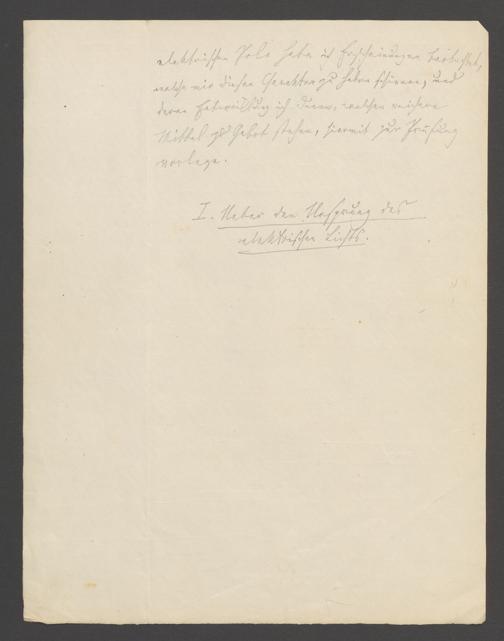 elektrischen Pole habe ich Erscheinungen beobachtet,
welche mir diesen Charakter zu haben scheinen, und
deren Entwicklung ich denen, welchen reichere
Mittel zu Gebot stehen, hiermit zur Prüfung
vorlege.
I. Ueber den Ursprung des
elektrischen Lichts.